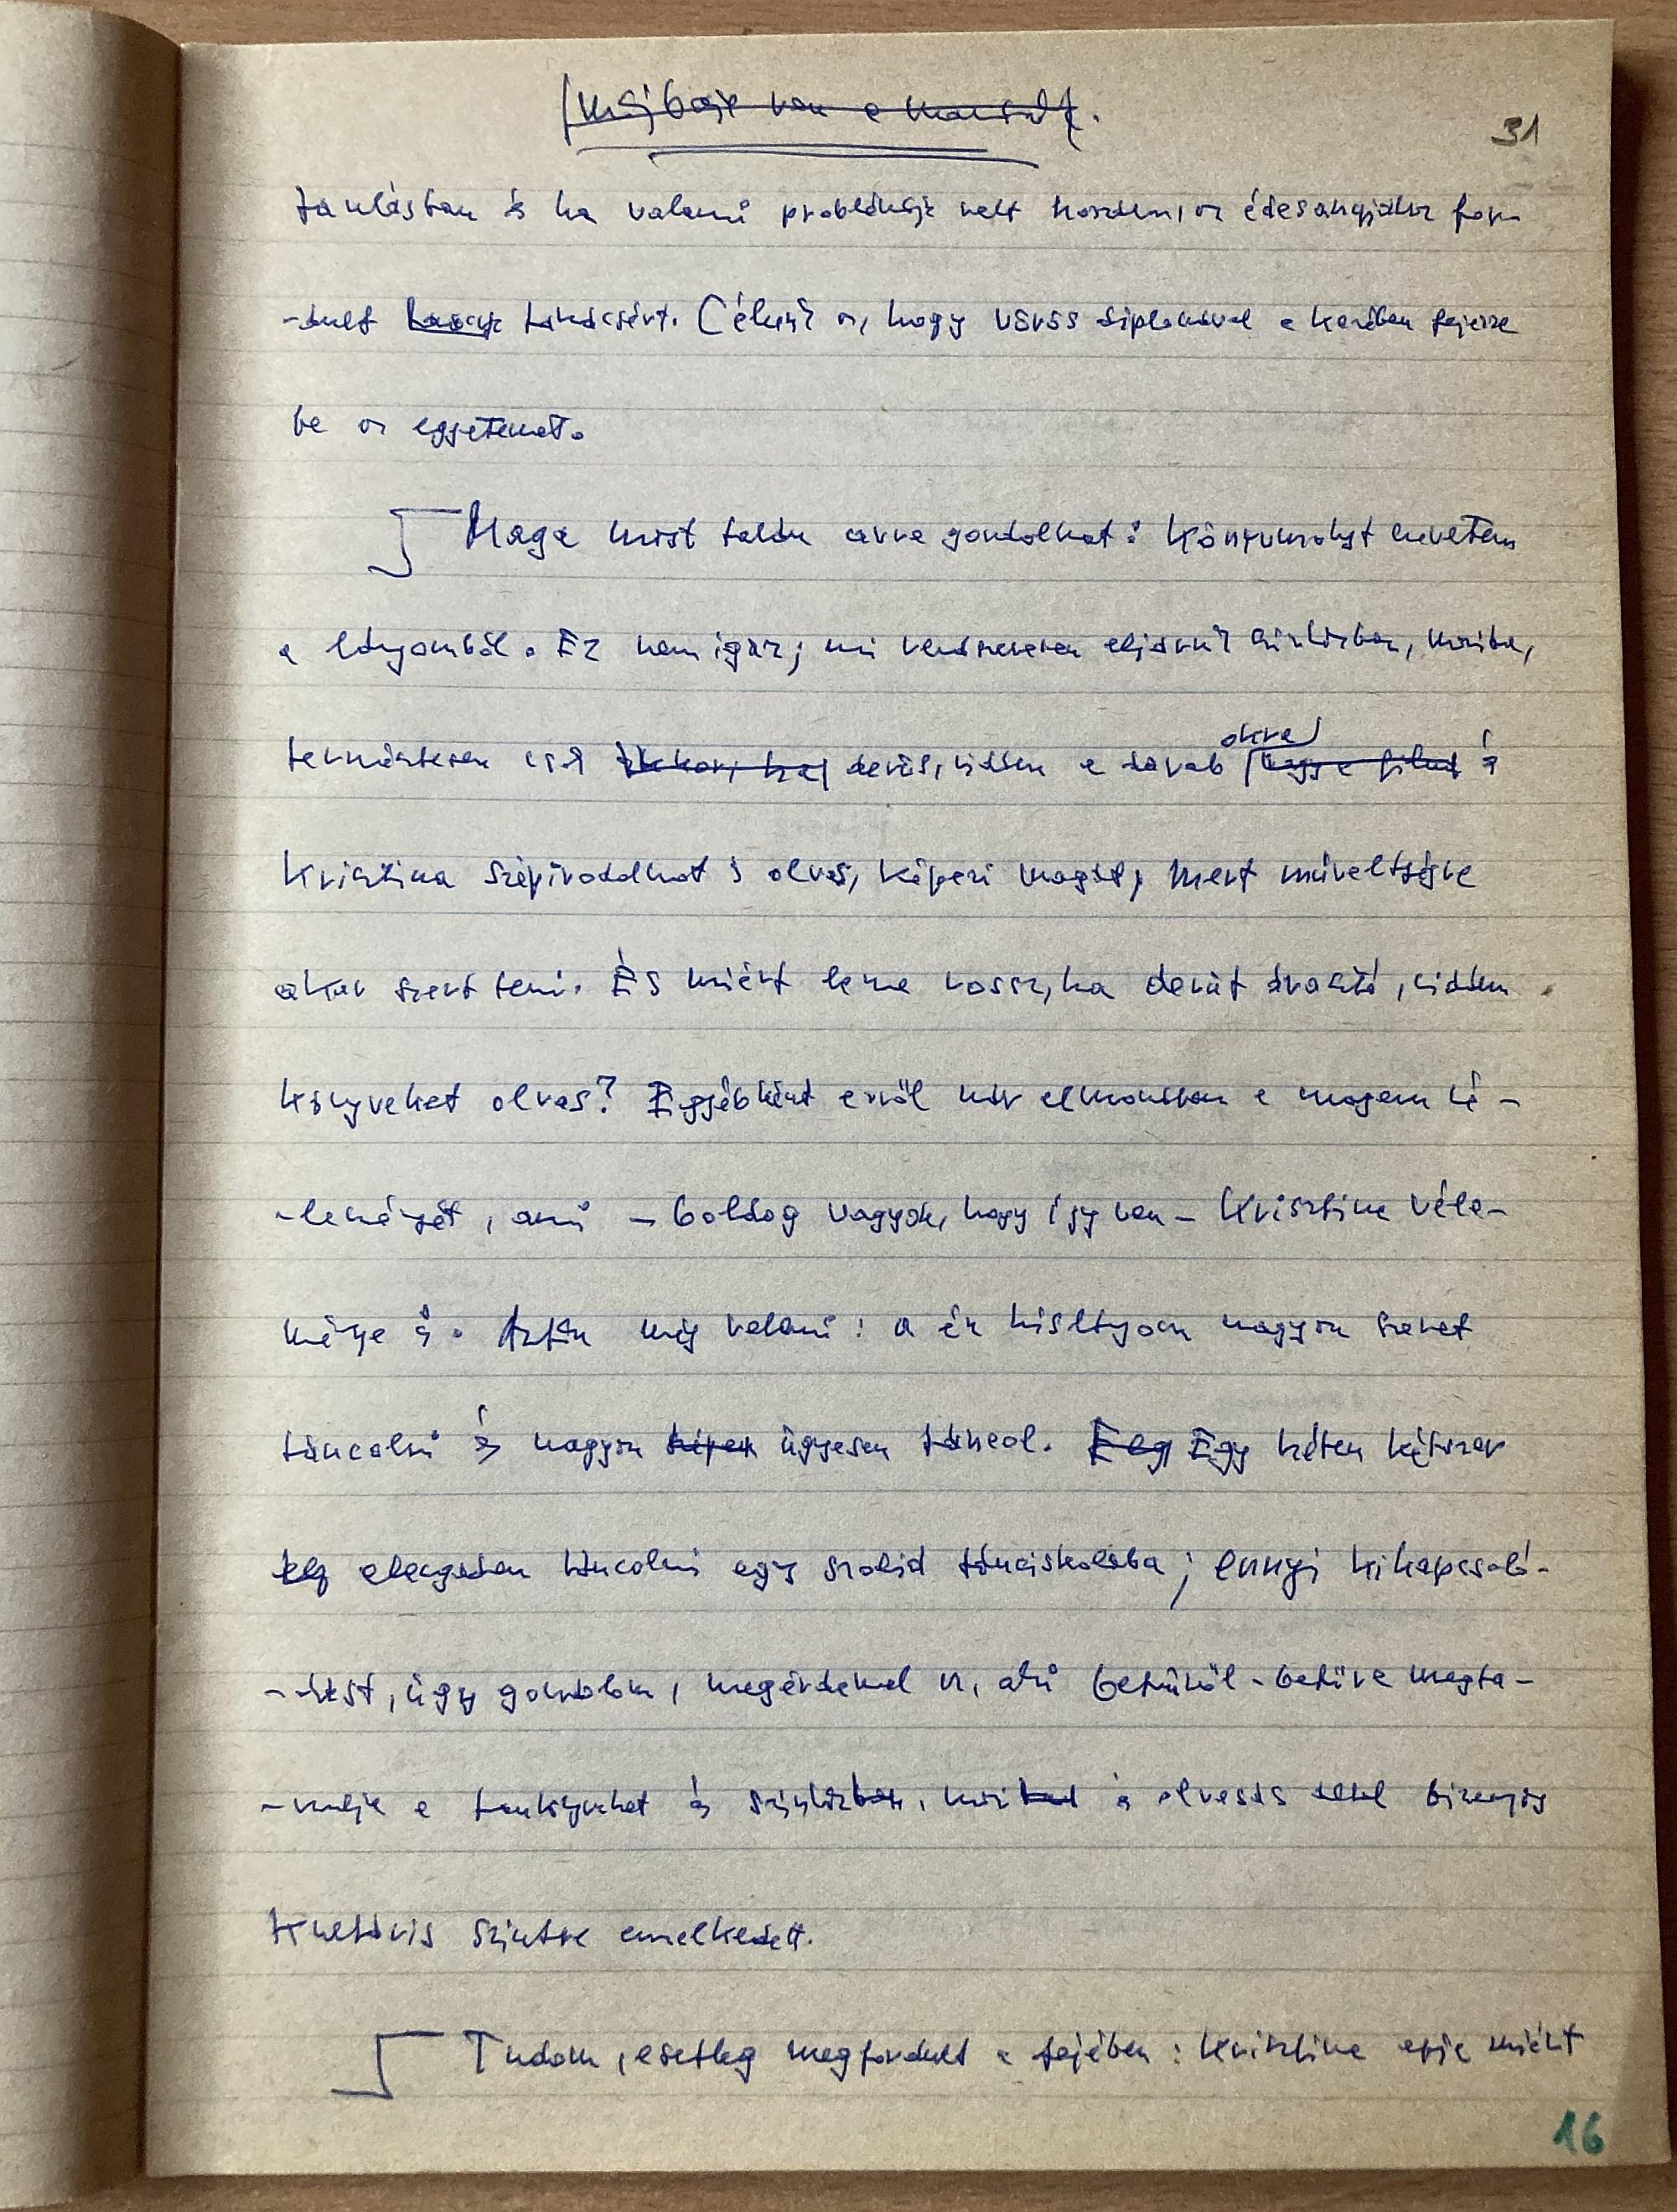 31
tanulásban és ha valami problémája volt hozzám, az édesanyjához for-
-dult tanácsért. Célunk az, hogy vörös diplomával a kezében fejezze
be az egyetemet.
Maga most talán arra gondolhat: könyvmolyt neveltem
a lányomból. Ez nem igaz; mi rendszeresen eljárunk színházba, moziba,
természetesen csak derűs, vidám a darab és
Krisztina szépirodalmat is olvas, képezi magát, mert műveltségre
akar szert tenni. És miért lenne rossz, ha derűt árasztó, vidám
könyveket olvas? Egyébként erről már elmondtam a magam vé-
-leményét, ami – boldog vagyok, hogy így van – Krisztina véle-
ménye is. Aztán még valami: az én kislányom nagyon szeret
táncolni és nagyon ügyesen táncol. Egy héten kétszer
elengedem táncolni egy szolid tánciskolába; ennyi kikapcsoló-
-dást, úgy gondolom, megérdemel az, aki betűről-betűre megta-
-nulja a tankönyveket és színház, mozi és olvasás által bizonyos
kulturális szintre emelkedett.
Tudom, esetleg megfordult a fejében: Krisztina apja miért
16